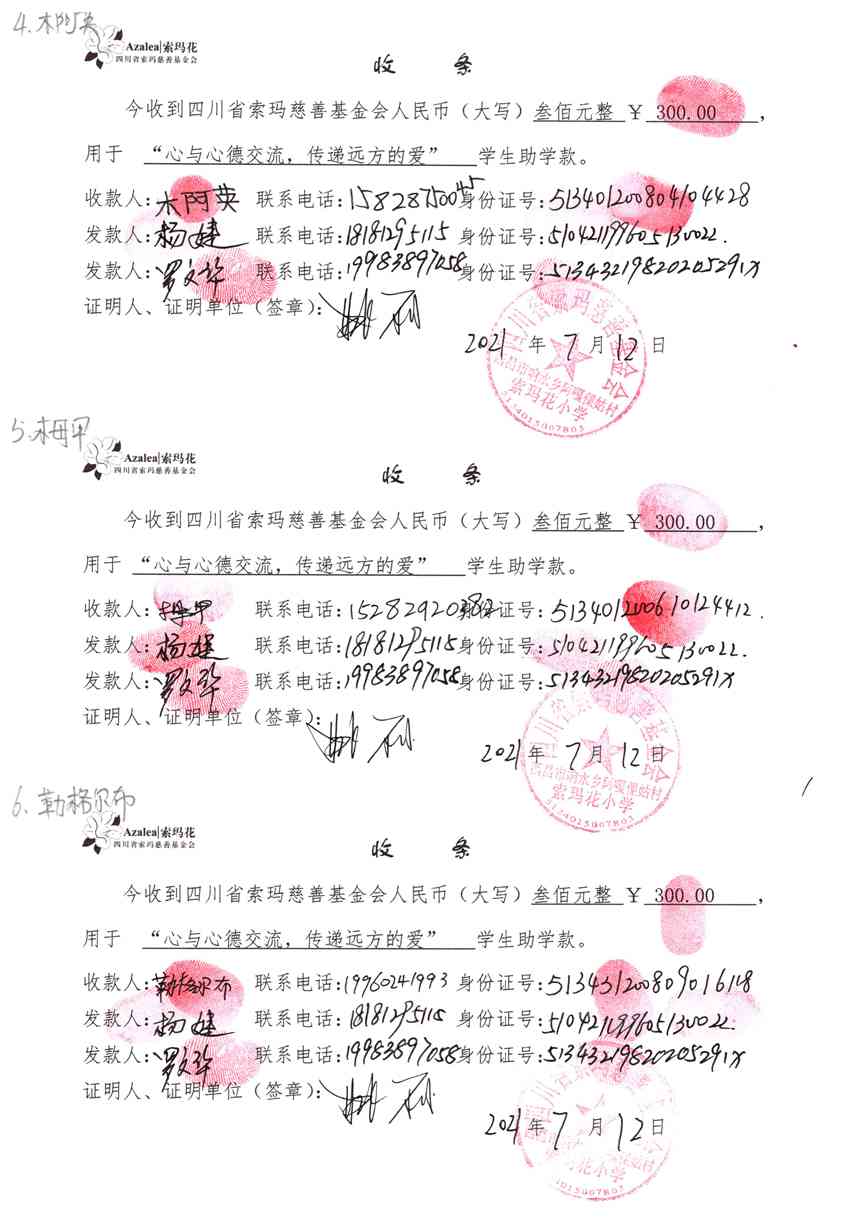 4.木阿英
Azalea|索玛花
四川省索玛慈善基金会
收 条
今收到四川省索玛慈善基金会人民币（大写）叁佰元整 ￥ 300.00 ，
用于 “心与心德交流，传递远方的爱” 学生助学款。
收款人：木阿英 联系电话：15828750045 身份证号：513401200804104428
发款人：杨婕 联系电话：18181295115 身份证号：510421199605130022.
发款人：罗文华 联系电话：19983897058 身份证号：51343219820205291X
证明人、证明单位（签章）：
2021 年 7 月 12 日
四川省索玛慈善基金会
西昌市响水乡阿嘎倮姑村
索玛花小学
5134015007803
5.木母甲
Azalea|索玛花
四川省索玛慈善基金会
收 条
今收到四川省索玛慈善基金会人民币（大写）叁佰元整 ￥ 300.00 ，
用于 “心与心德交流，传递远方的爱” 学生助学款。
收款人： 联系电话：15282920382 身份证号：513401200610124412.
发款人：杨婕 联系电话：18181295115 身份证号：510421199605130022.
发款人：罗文华 联系电话：19983897058 身份证号：51343219820205291X
证明人、证明单位（签章）：
2021 年 7 月 12 日
四川省索玛慈善基金会
西昌市响水乡阿嘎倮姑村
索玛花小学
5134015007803
6.勒格尔布
Azalea|索玛花
四川省索玛慈善基金会
收 条
今收到四川省索玛慈善基金会人民币（大写）叁佰元整 ￥ 300.00 ，
用于 “心与心德交流，传递远方的爱” 学生助学款。
收款人：勒格尔布 联系电话：19960241993 身份证号：513431200809016118
发款人：杨婕 联系电话：18181295115 身份证号：510421199605130022.
发款人：罗文华 联系电话：19983897058 身份证号：51343219820205291X
证明人、证明单位（签章）：
2021 年 7 月 12 日